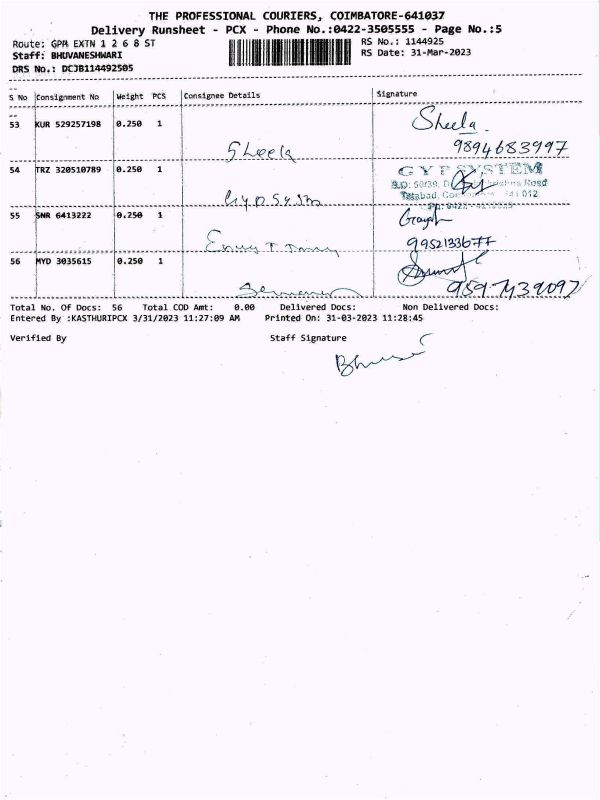 THE PROFESSIONAL COURIERS, COIMBATORE-641037
Delivery Runsheet - PCX - Phone No.:0422-3505555 - Page No.:5
Route: GPM EXTN 1 2 6 8 ST
RS No.: 1144925
Staff: BHUVANESHWARI
RS Date: 31-Mar-2023
DRS No.: DCJB114492505
S No Consignment No Weight PCS Consignee Details Signature
53 KUR 529257198 0.250 1 Sheela Sheela
9894683997
54 TRZ 320510789 0.250 1
GYP SYSTEM
Road
Tatabad,
55 SNR 6413222 0.250 1
9952133677
56 MYD 3035615 0.250 1
9597439097
Total No. Of Docs: 56 Total COD Amt: 0.00 Delivered Docs: Non Delivered Docs:
Entered By :KASTHURIPCX 3/31/2023 11:27:09 AM Printed On: 31-03-2023 11:28:45
Verified By Staff Signature